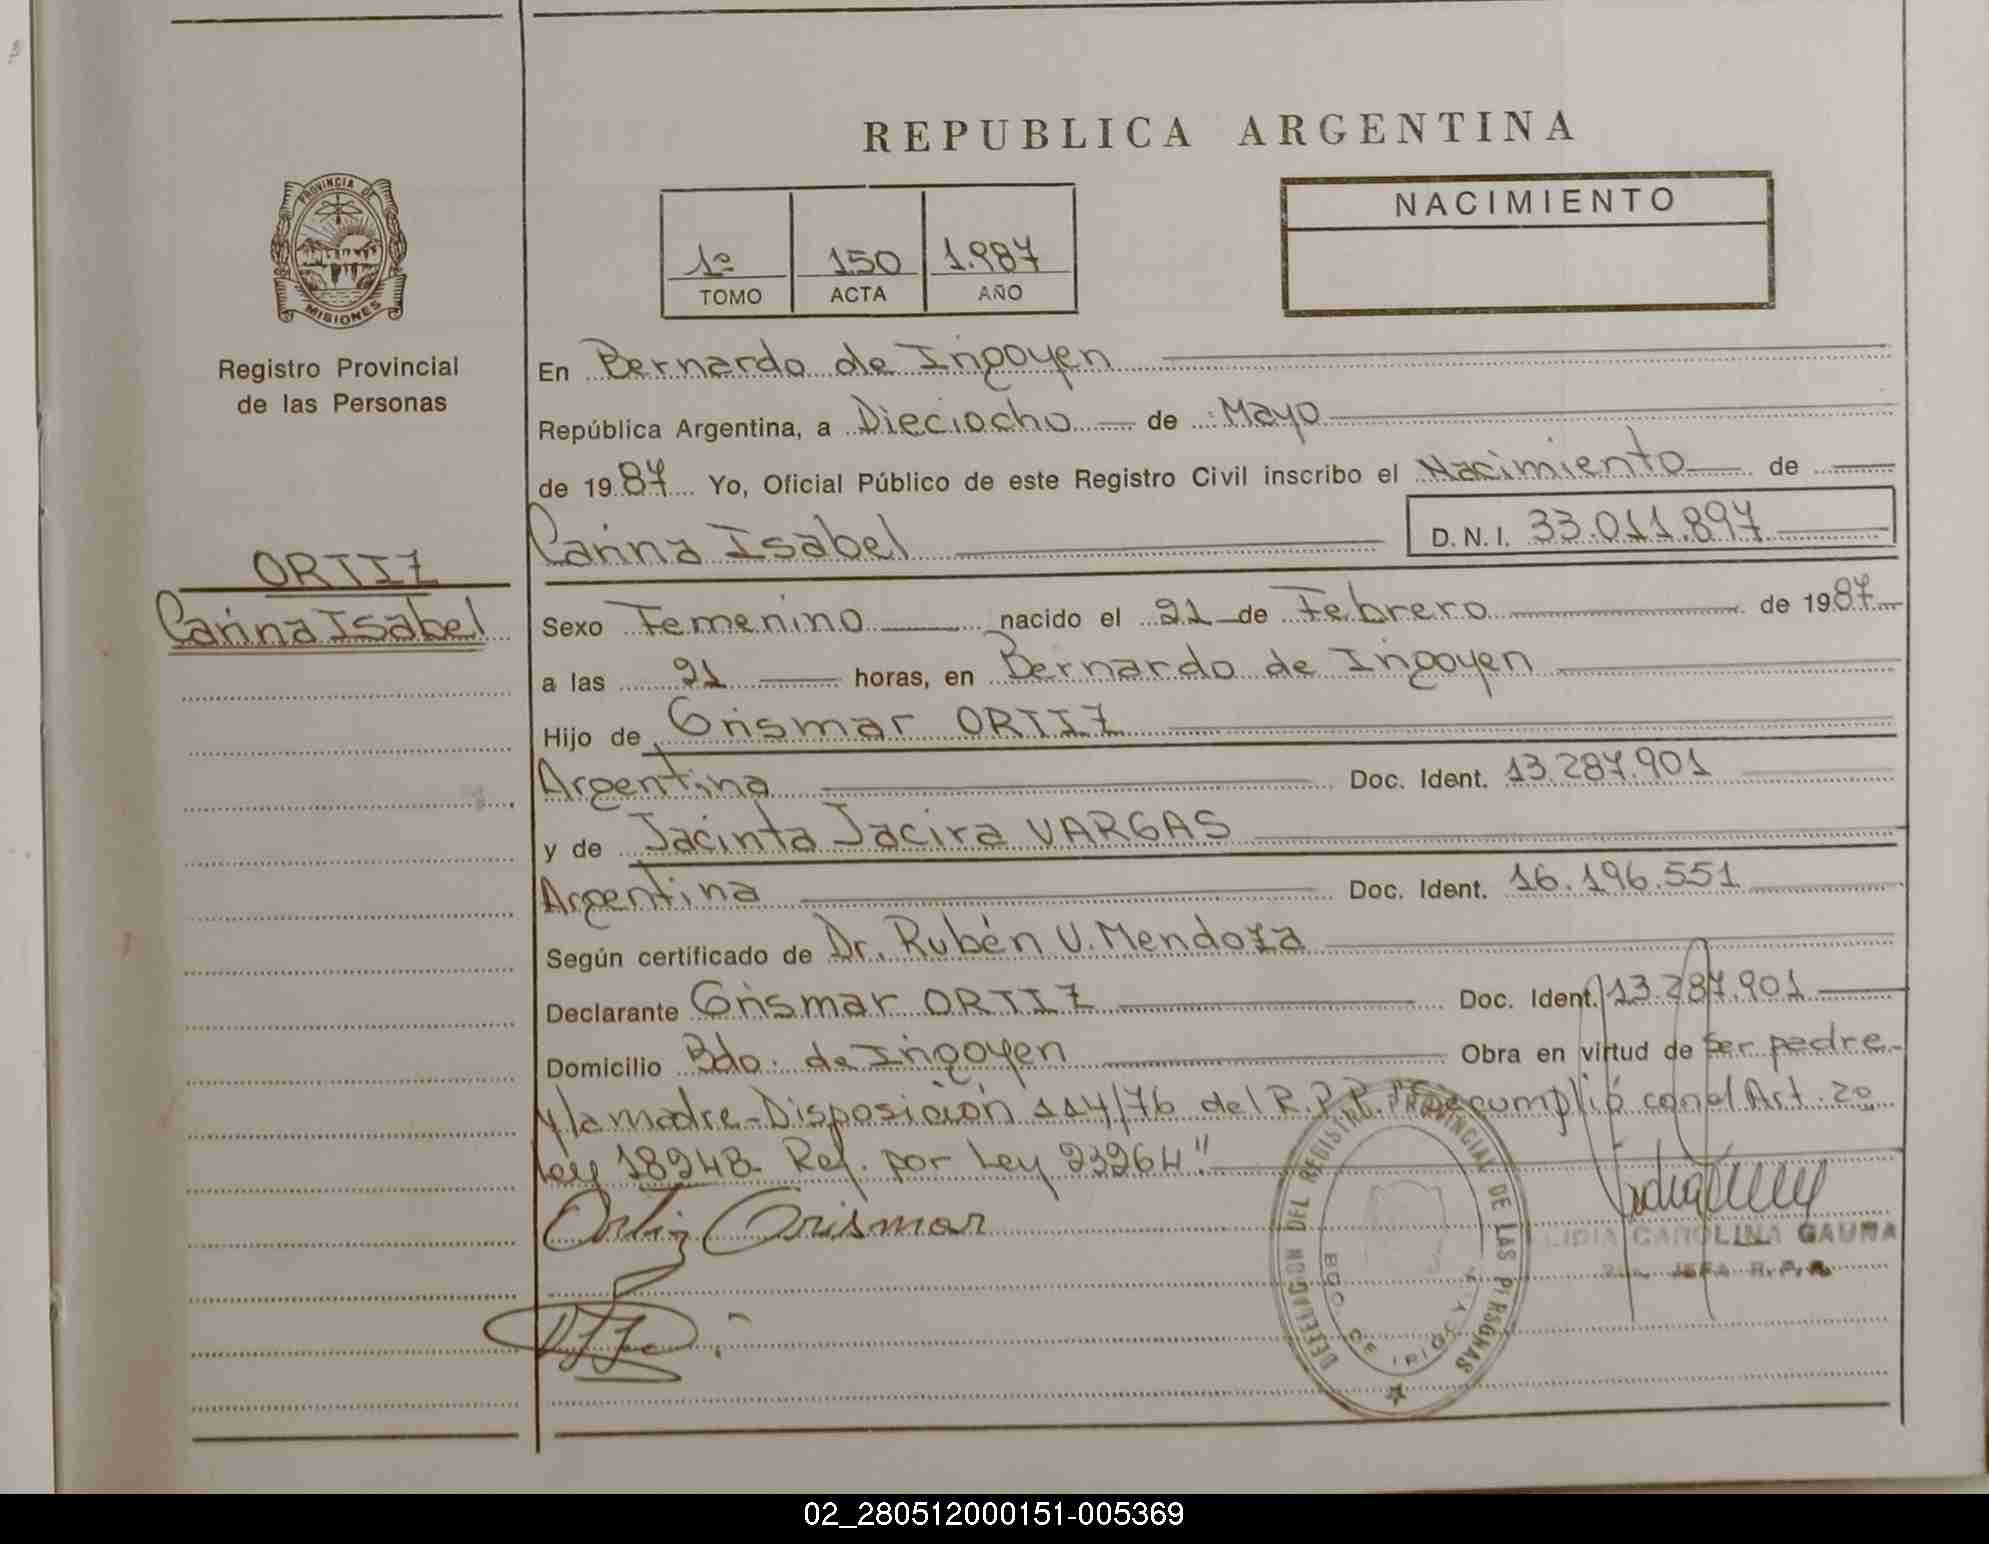 REPUBLICA ARGENTINA
PROVINCIA DE MISIONES
Registro Provincial
de las Personas
1º 150 1.987
TOMO ACTA AÑO
NACIMIENTO
En Bernardo de Irigoyen
República Argentina, a Dieciocho de Mayo
de 1987 Yo, Oficial Público de este Registro Civil inscribo el Nacimiento de
Carina Isabel D.N.I. 33.011.897
ORTIZ
Carina Isabel
Sexo Femenino nacido el 21 de Febrero de 1987
a las 21 horas, en Bernardo de Irigoyen
Hijo de Grismar ORTIZ
Argentina Doc. Ident. 13.287.901
y de Jacinta Jacira VARGAS
Argentina Doc. Ident. 16.196.551
Según certificado de Dr. Rubén V. Mendoza
Declarante Grismar ORTIZ Doc. Ident. 13.287.901
Domicilio Bdo. de Irigoyen Obra en virtud de ser padre
y la madre-Disposición 114/76 del R.P.P. "Se cumplió con el Art. 2º
Ley 18248 Ref. por Ley 23264"
Ortiz Grismar
DELEGACION DEL REGISTRO PROVINCIAL DE LAS PERSONAS
BDO. DE IRIGOYEN
LIDIA CAROLINA GAUNA
JEFA R.P.P.
02_280512000151-005369